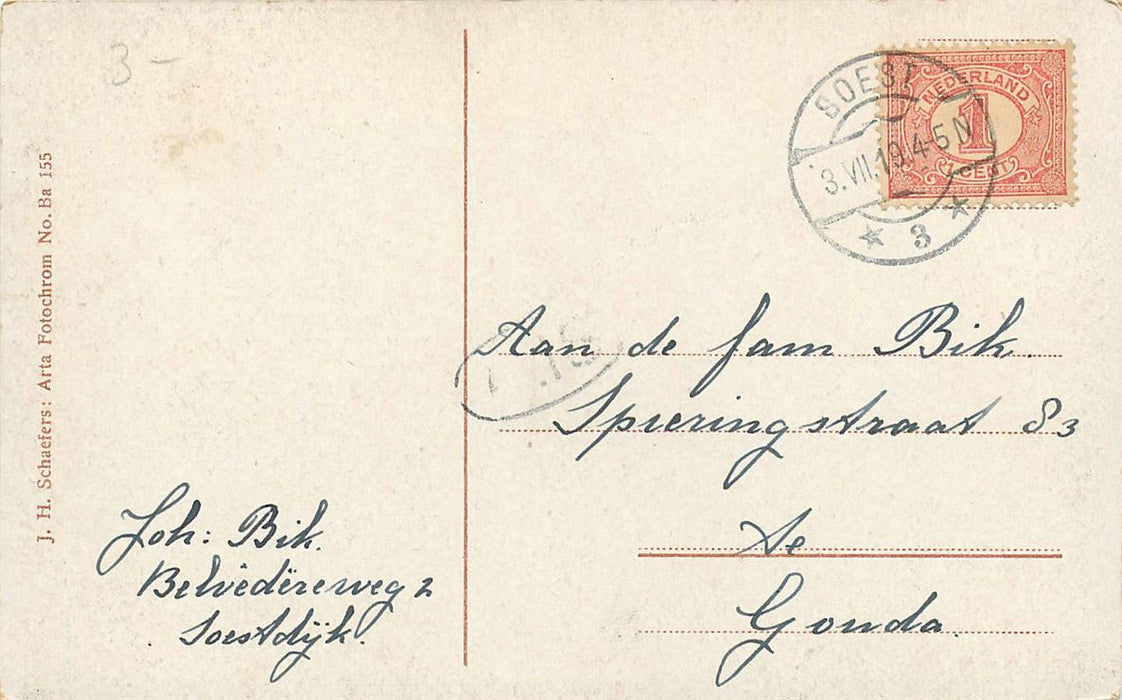 3 -
J. H. Schaefers: Arta Fotochrom No. Ba 155
SOEST
3.VII.19.4-5 N
3
NEDERLAND
1
CENT
Aan de fam Bik.
Spieringstraat 83
te
Gouda.
Joh: Bik.
Belvedèreweg 2
Soestdijk.